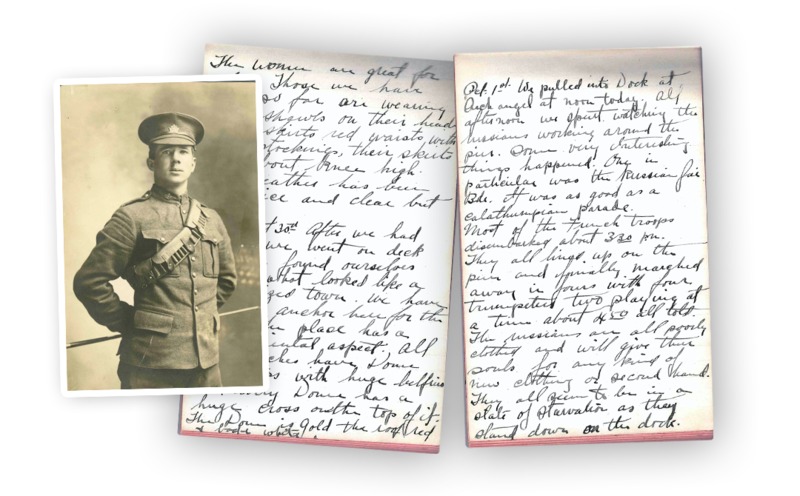 The women are great for
Those we have
so far are wearing
shawls on their head
skirts red waists, with
stockings, their skirts
bout knee high.
eather has been
ice and clear but
30th After we had
we went on deck
found ourselves
what looked like a
town. We have
anchor here for the
place has a
ental aspect. All
ches have Dome
with huge belfries
Dome has a
huge cross on the top of it.
The Dome is Gold the roof red
Oct. 1st. We pulled into Dock at
Archangel at noon today. All
afternoon we spent watching the
russians working around the
pier. Some very interesting
things happened. One in
particular was the Russian fair
Bde. It was as good as a
calathumpian parade.
Most of the French troops
disembarked about 3:30 pm.
They all lined up on the
pier and finally marched
away in fours with four
trumpeters, two playing at
a time about 450 all told.
The russians are all poorly
clothed and will give their
souls for any kind of
new clothing or second hand.
They all seem to be in a
state of starvation as they
stand down on the dock.